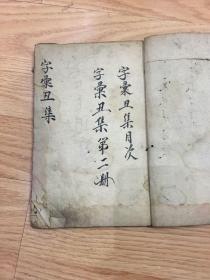 字彙丑集目次
字彙丑集第二冊
字彙丑集